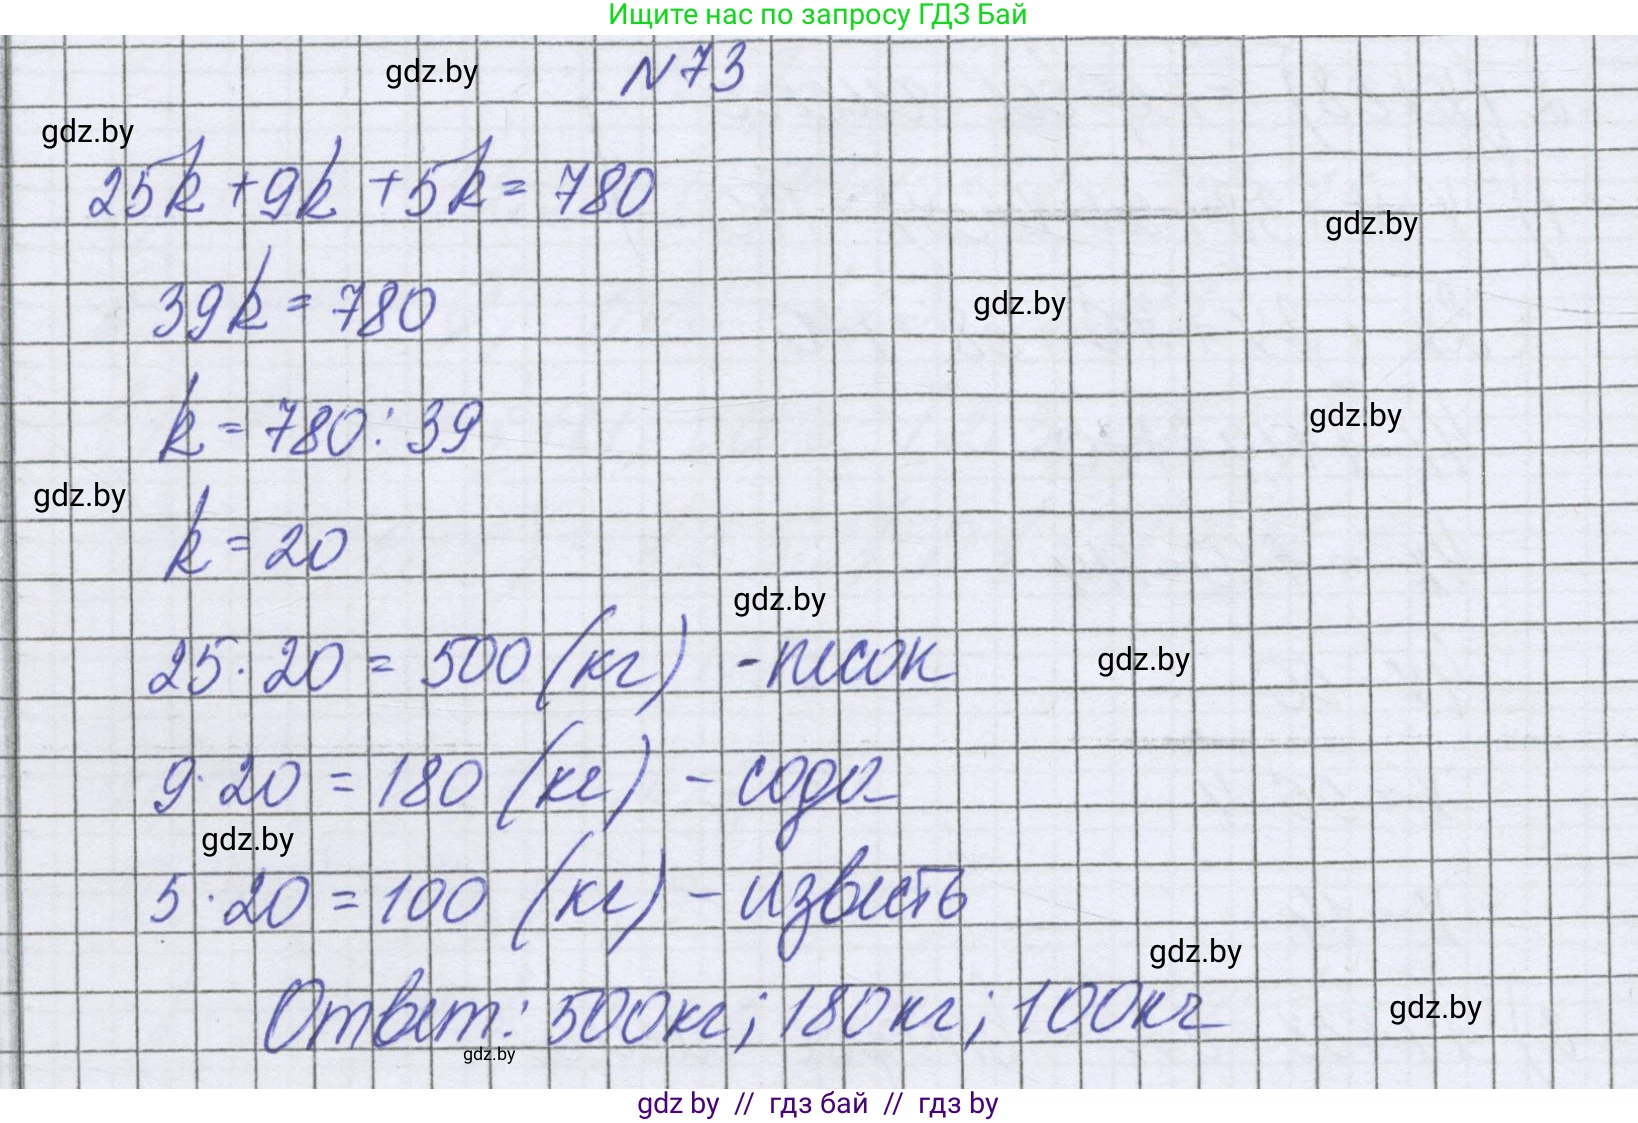 Ищите нас по запросу ГДЗ Бай
gdz.by
N73
gdz.by
25k + 9k + 5k = 780
gdz.by
39k = 780
gdz.by
k = 780 : 39
gdz.by
gdz.by
k = 20
gdz.by
25 · 20 = 500 (кг) - песок
gdz.by
9 · 20 = 180 (кг) - сода
gdz.by
5 · 20 = 100 (кг) - известь
gdz.by
Ответ: 500кг; 180кг; 100кг
gdz.by
gdz.by
gdz by // гдз бай // гдз by